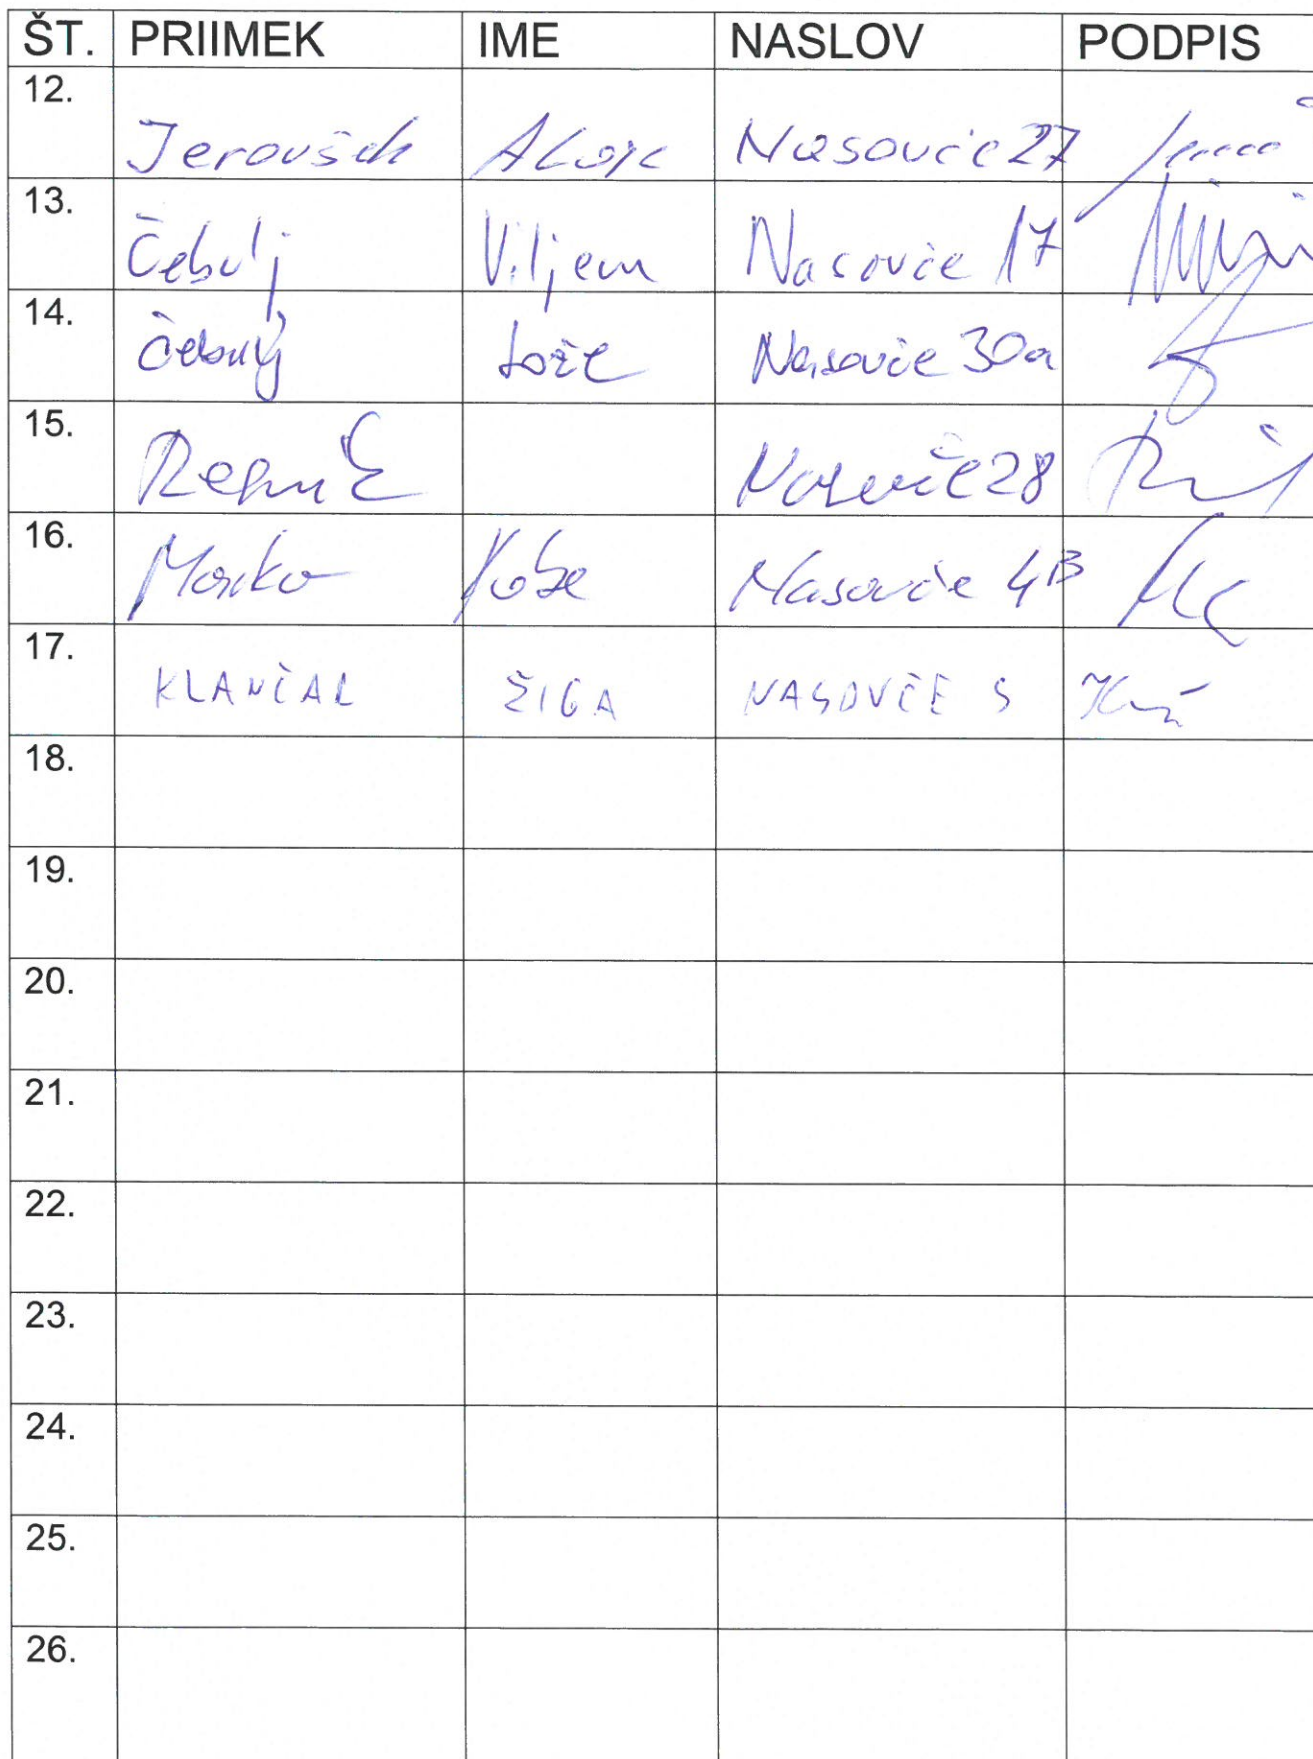 ŠT. PRIIMEK IME NASLOV PODPIS
12. Jerovšek Alojz Nasovče 27
13. Čebulj Viljem Nasovče 17
14. Čebulj Jože Nasovče 30a
15. Nasovče 28
16. Marko Kobe Nasovče 4B
17. KLANČAR ŽIGA NASOVČE 5
18.
19.
20.
21.
22.
23.
24.
25.
26.